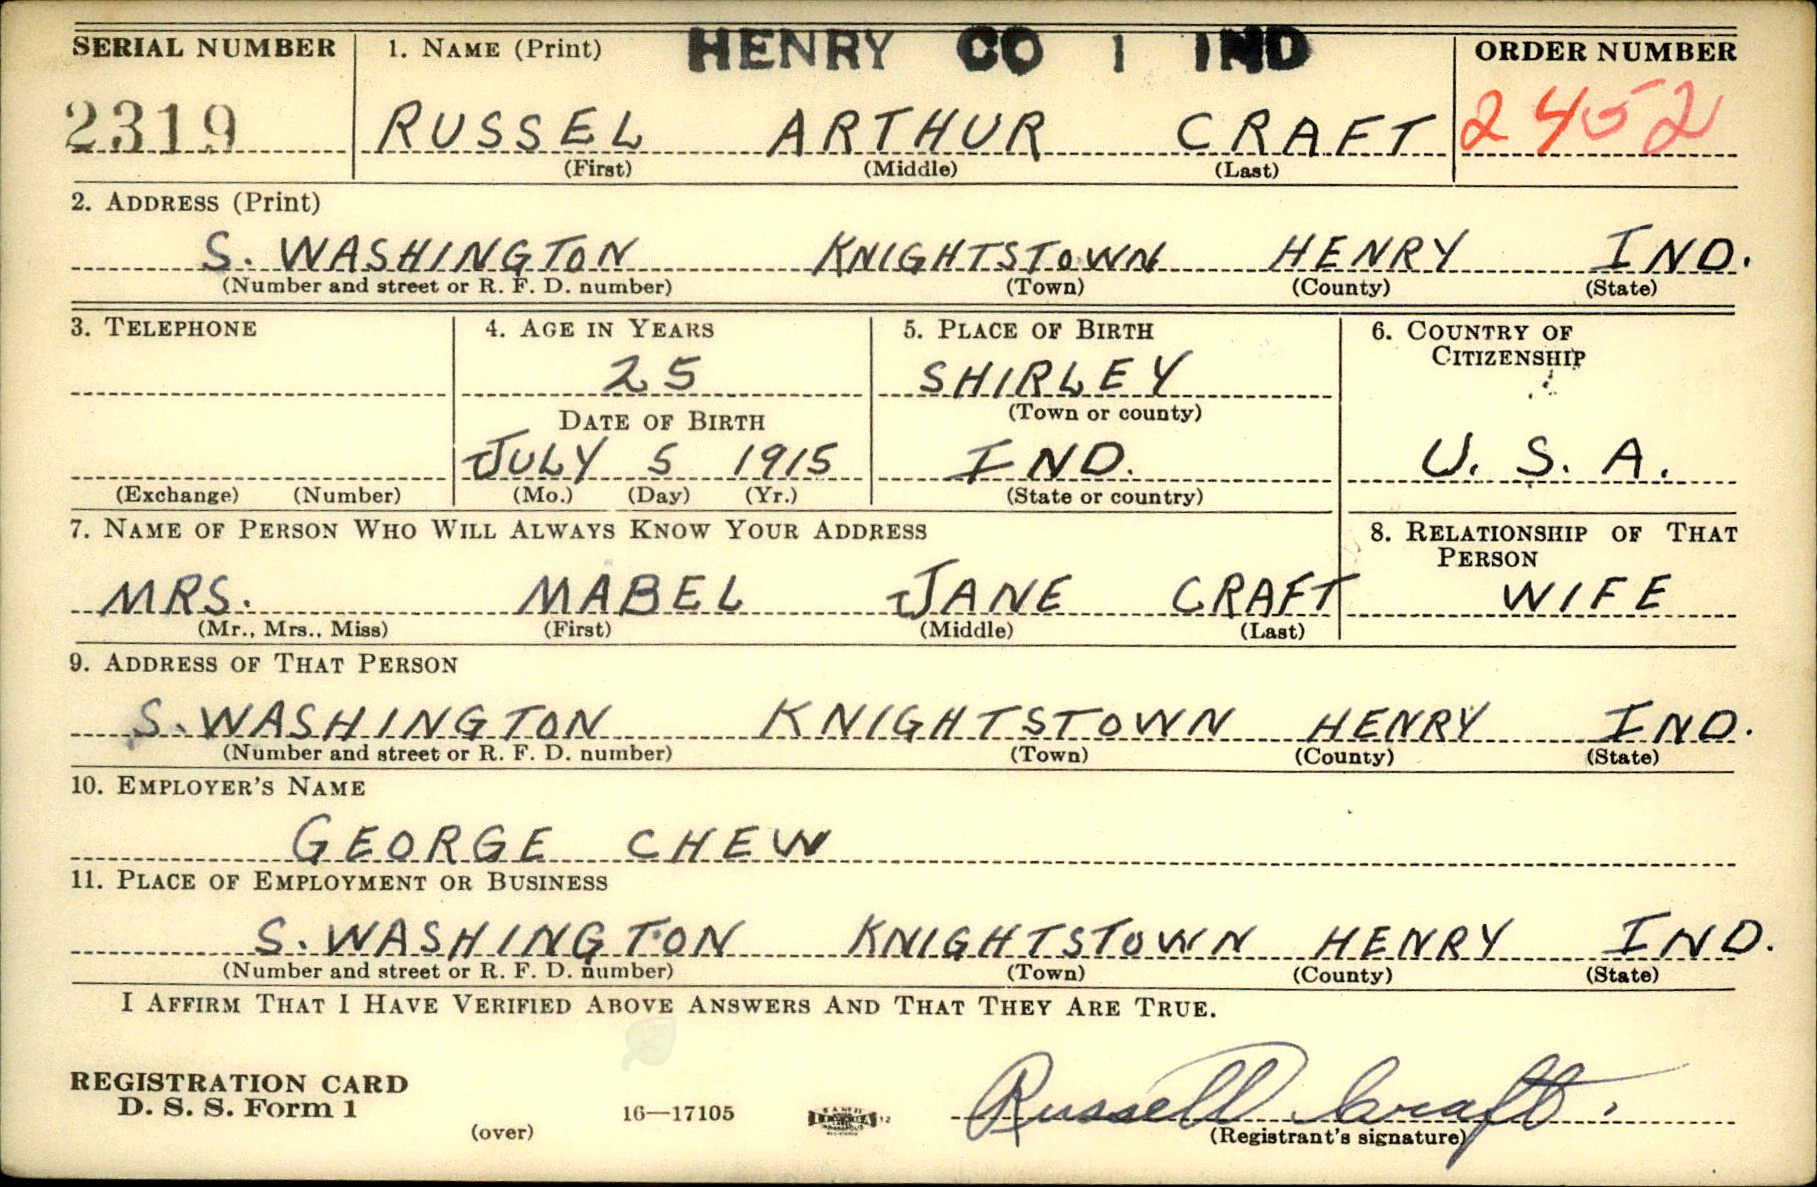 HENRY CO 1 IND
SERIAL NUMBER 1. NAME (Print) ORDER NUMBER
2319 RUSSEL ARTHUR CRAFT 2452
(First) (Middle) (Last)
2. ADDRESS (Print)
S. WASHINGTON KNIGHTSTOWN HENRY IND.
(Number and street or R. F. D. number) (Town) (County) (State)
3. TELEPHONE 4. AGE IN YEARS 5. PLACE OF BIRTH 6. COUNTRY OF
CITIZENSHIP
25 SHIRLEY
(Town or county)
DATE OF BIRTH
JULY 5 1915 IND. U. S. A.
(Exchange) (Number) (Mo.) (Day) (Yr.) (State or country)
7. NAME OF PERSON WHO WILL ALWAYS KNOW YOUR ADDRESS 8. RELATIONSHIP OF THAT
PERSON
MRS. MABEL JANE CRAFT WIFE
(Mr., Mrs., Miss) (First) (Middle) (Last)
9. ADDRESS OF THAT PERSON
S. WASHINGTON KNIGHTSTOWN HENRY IND.
(Number and street or R. F. D. number) (Town) (County) (State)
10. EMPLOYER'S NAME
GEORGE CHEW
11. PLACE OF EMPLOYMENT OR BUSINESS
S. WASHINGTON KNIGHTSTOWN HENRY IND.
(Number and street or R. F. D. number) (Town) (County) (State)
I AFFIRM THAT I HAVE VERIFIED ABOVE ANSWERS AND THAT THEY ARE TRUE.
REGISTRATION CARD
D. S. S. Form 1 16—17105 Russell Craft.
(over) (Registrant's signature)